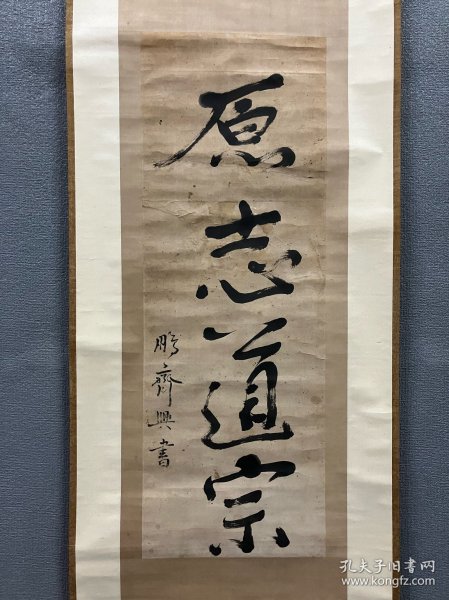 原志道宗
鵬齋興書
孔夫子旧书网
www.kongfz.com